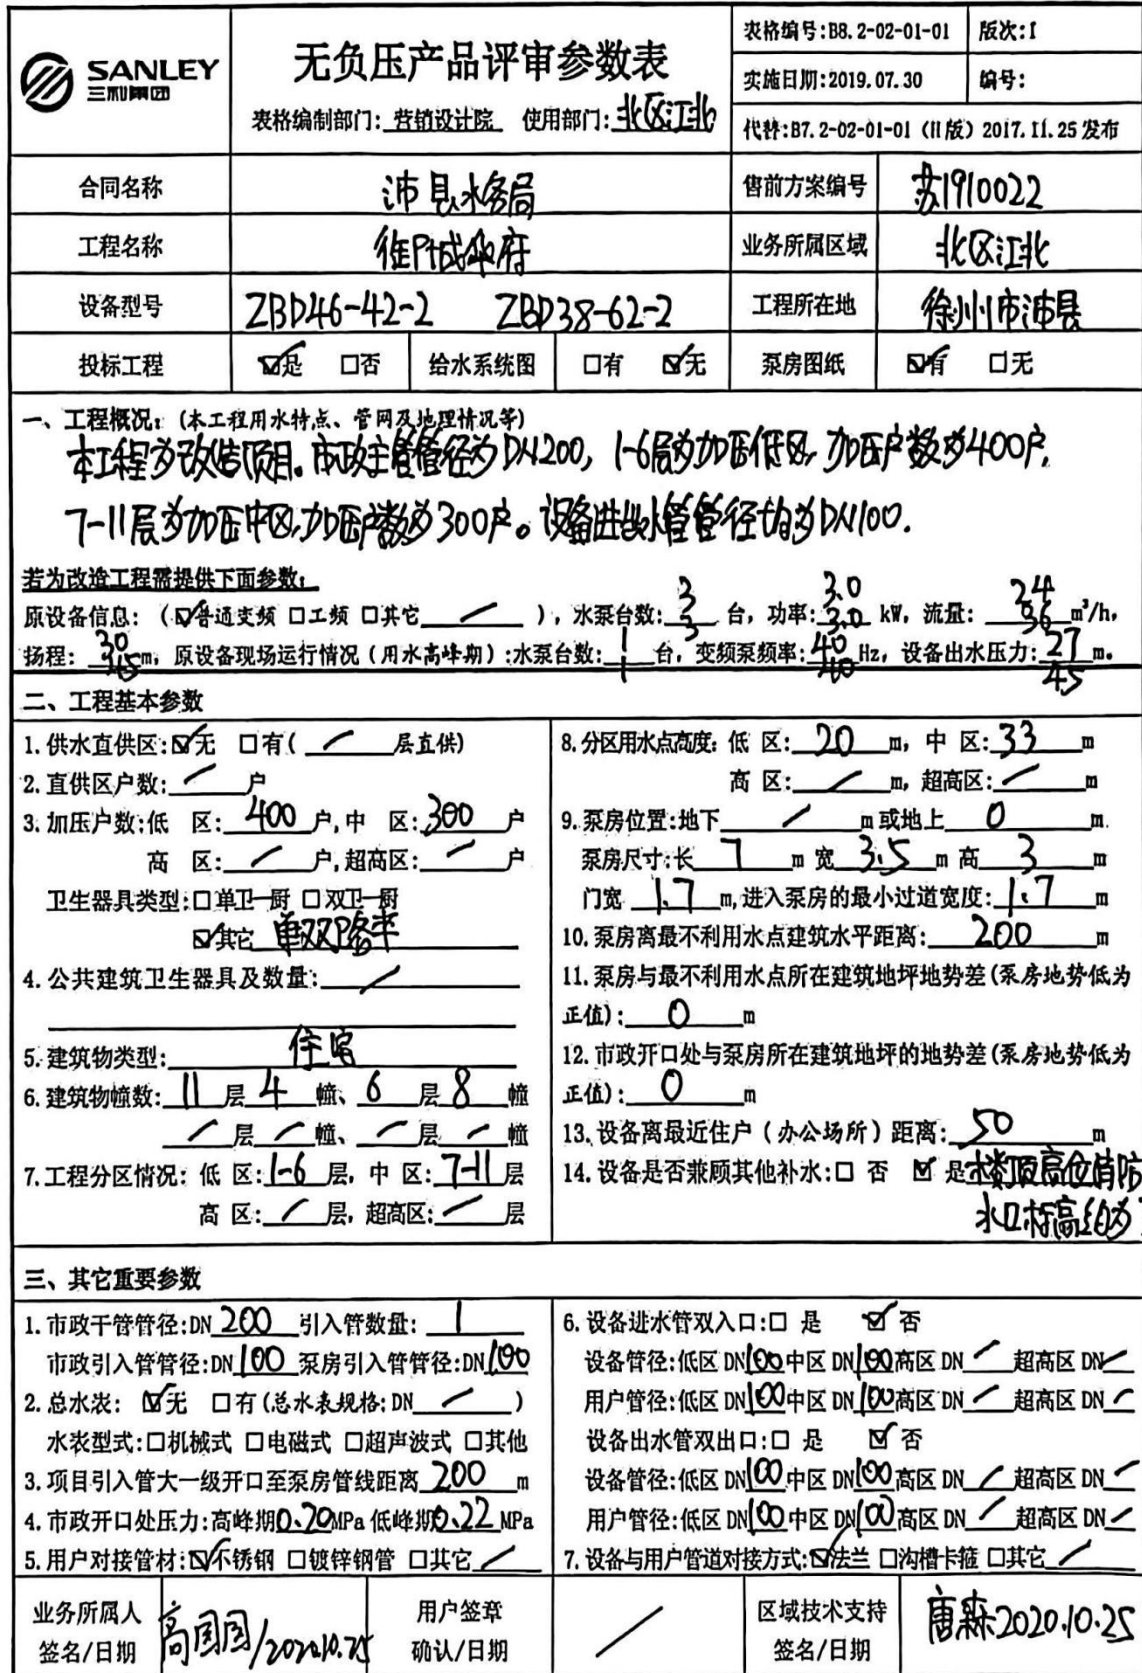 SANLEY
三利集团
无负压产品评审参数表
表格编制部门: 营销设计院 使用部门: 北区江北
表格编号:B8.2-02-01-01 版次:I
实施日期:2019.07.30 编号:
代替:B7.2-02-01-01 (H版) 2017.11.25 发布
合同名称 沛县水务局 售前方案编号 苏1910022
工程名称 府 业务所属区域 北区江北
设备型号 ZBD46-42-2 ZBD38-62-2 工程所在地 徐州市沛县
投标工程 ☑是 □否 给水系统图 □有 ☑无 泵房图纸 ☑有 □无
一、工程概况:(本工程用水特点、管网及地理情况等)
本工程为改造项目。市政主管管径为DN200, 1-6层为加压低区, 加压户数为400户,
7-11层为加压中区,加压户数为300户。设备进出水管管径均为DN100.
若为改造工程需提供下面参数:
原设备信息: (☑普通变频 □工频 □其它 / ), 水泵台数: 3 3 台, 功率: 3.0 3.0 kW, 流量: 24 36 m³/h,
扬程: 30 m, 原设备现场运行情况(用水高峰期):水泵台数: 1 1 台, 变频泵频率: 40 40 Hz, 设备出水压力: 27 45 m。
二、工程基本参数
1.供水直供区:☑无 □有( / 层直供)
2.直供区户数: / 户
3.加压户数:低 区: 400 户,中 区: 300 户
高 区: / 户,超高区: / 户
卫生器具类型:□单卫一厨 □双卫一厨
☑其它 单双卫各半
4.公共建筑卫生器具及数量: /
5.建筑物类型: 住宅
6.建筑物幢数: 11 层 4 幢、 6 层 8 幢
/ 层 / 幢、 / 层 / 幢
7.工程分区情况: 低 区: 1-6 层, 中 区: 7-11 层
高 区: / 层, 超高区: / 层
8.分区用水点高度: 低 区: 20 m, 中 区: 33 m
高 区: / m, 超高区: / m
9.泵房位置:地下 / m 或地上 0 m.
泵房尺寸:长 7 m 宽 3.5 m 高 3 m
门宽 1.7 m,进入泵房的最小过道宽度: 1.7 m
10.泵房离最不利用水点建筑水平距离: 200 m
11.泵房与最不利用水点所在建筑地坪地势差(泵房地势低为
正值): 0 m
12.市政开口处与泵房所在建筑地坪的地势差(泵房地势低为
正值): 0 m
13.设备离最近住户(办公场所)距离: 50 m
14.设备是否兼顾其他补水:□ 否 ☑ 是 楼顶高位消防
水口标高约为
三、其它重要参数
1.市政干管管径:DN 200 引入管数量: 1
市政引入管管径:DN 100 泵房引入管管径:DN 100
2.总水表: ☑无 □有(总水表规格:DN / )
水表型式:□机械式 □电磁式 □超声波式 □其他
3.项目引入管大一级开口至泵房管线距离 200 m
4.市政开口处压力:高峰期 0.20 MPa 低峰期 0.22 MPa
5.用户对接管材:☑不锈钢 □镀锌钢管 □其它 /
6.设备进水管双入口:□ 是 ☑ 否
设备管径:低区 DN 100 中区 DN 100 高区 DN / 超高区 DN /
用户管径:低区 DN 100 中区 DN 100 高区 DN / 超高区 DN /
设备出水管双出口:□ 是 ☑ 否
设备管径:低区 DN 100 中区 DN 100 高区 DN / 超高区 DN /
用户管径:低区 DN 100 中区 DN 100 高区 DN / 超高区 DN /
7.设备与用户管道对接方式:☑法兰 □沟槽卡箍 □其它 /
业务所属人 签名/日期 高国国/2020.10.25 用户签章 确认/日期 / 区域技术支持 签名/日期 唐森2020.10.25